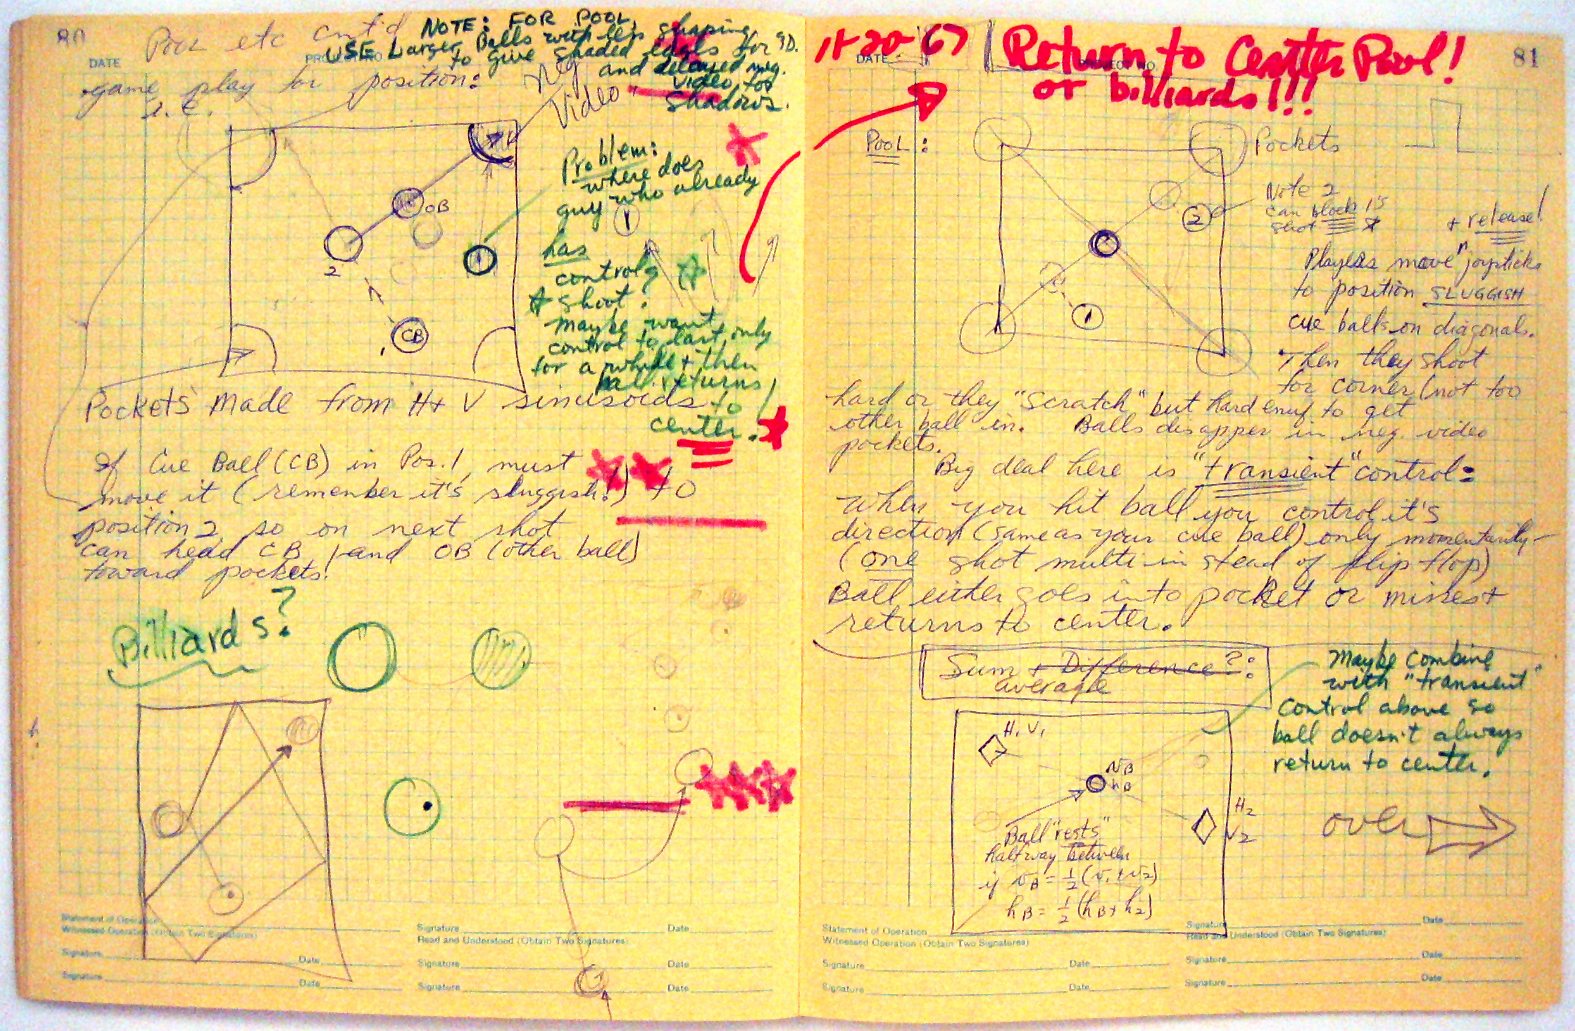 80
DATE
PROJECT NO.
Pool etc cont'd
game play for position:
i.e.
NOTE: FOR POOL,
USE Larger Balls with less shaping
to give shaded edges for 3D.
and delayed neg.
video for
shadows.
Neg
Video
OB
2
1
CB
1
Problem:
where does
guy who already
has
control
shoot?
Maybe want
control to last only
for a while & then
ball returns
to
center.
Pockets made from H + V sinusoids
If Cue Ball (CB) in Pos. 1, must
move it (remember it's sluggish!) to
position 2, so on next shot
can head CB and OB (other ball)
toward pockets!
Billiards?
Statement of Operation
Witnessed Operation (Obtain Two Signatures)
Signature Date
Signature Date
Signature Date
Read and Understood (Obtain Two Signatures)
Signature Date
Signature Date
81
DATE
PROJECT NO.
11-20-67
Return to Center Pool!
or billiards!!!
POOL:
Pockets
2
1
Note 2
can block 1's
shot
+ release!
Players move joysticks
to position SLUGGISH
cue balls on diagonals.
Then they shoot
for corner (not too
hard or they "scratch" but hard enuf to get
other ball in. Balls disapper in neg. video
pockets.
Big deal here is "transient" control:
when you hit ball you control it's
direction (same as your cue ball) only momentarily—
(one shot multi in stead of flip flop)
Ball either goes into pocket or misses +
returns to center.
Sum + Difference?:
average
Maybe combine
with "transient"
control above so
ball doesn't always
return to center.
H1 V1
VB
hB
H2
V2
Ball "rests"
halfway between
if vB = 1/2 (v1 + v2)
hB = 1/2 (hB + h2)
over
Statement of Operation
Witnessed Operation (Obtain Two Signatures)
Signature Date
Signature Date
Signature Date
Read and Understood (Obtain Two Signatures)
Signature Date
Signature Date